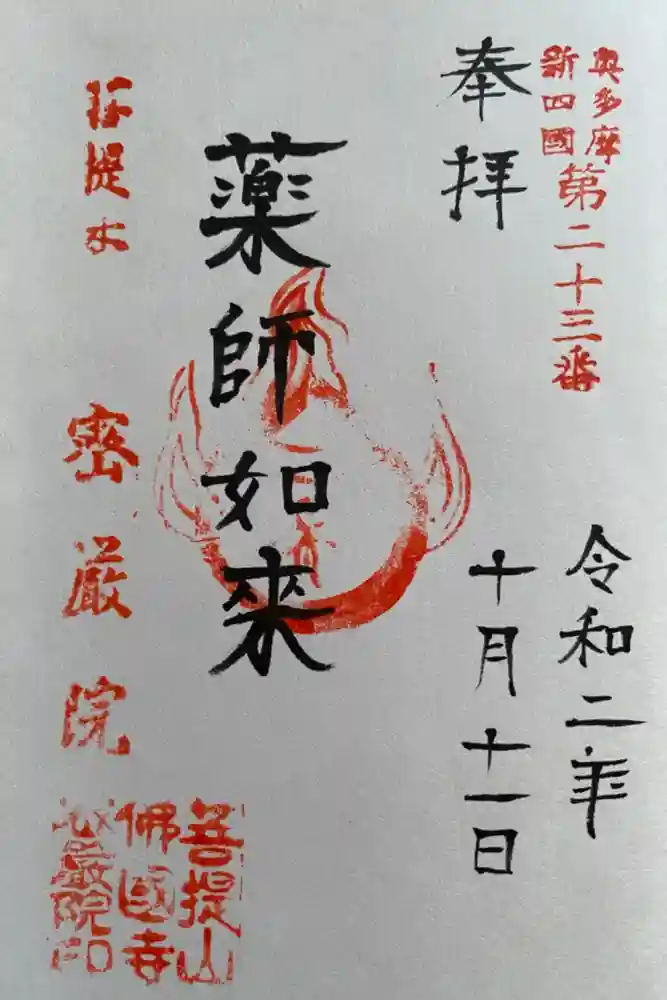 奥多摩
新四國
第二十三番
奉拝
令和二年
十月十一日
薬師如来
菩提山
密厳院
菩提山
佛國寺
密嚴院印